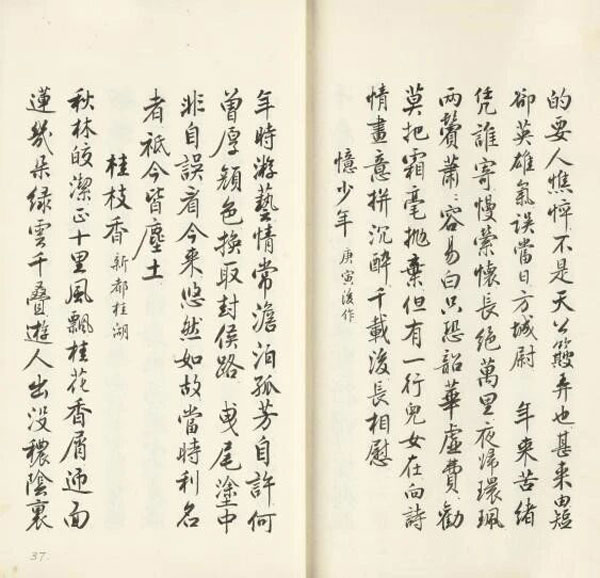 的要人憔悴不是天公簸弄也甚来由短
卻英雄氣誤當日方城尉　年来苦緒
凭誰寄慢縈懷長絕萬里夜歸環珮
兩鬢蕭〻容易白只恐韶華虛費勸
莫把霜毫抛棄但有一行兒女在向詩
情畫意拼沉醉千載後長相慰
憶少年 庚寅後作
年時游藝情常澹泊孤芳自許何
曾厚顏色換取封侯路　曳尾塗中
非自誤看今来悠然如故當時利名
者祇今皆塵土
桂枝香 新都桂湖
秋林皎潔正十里風飄桂花香屑迎面
蓮幾朵緑雲千叠遊人出没穠陰裏
37.